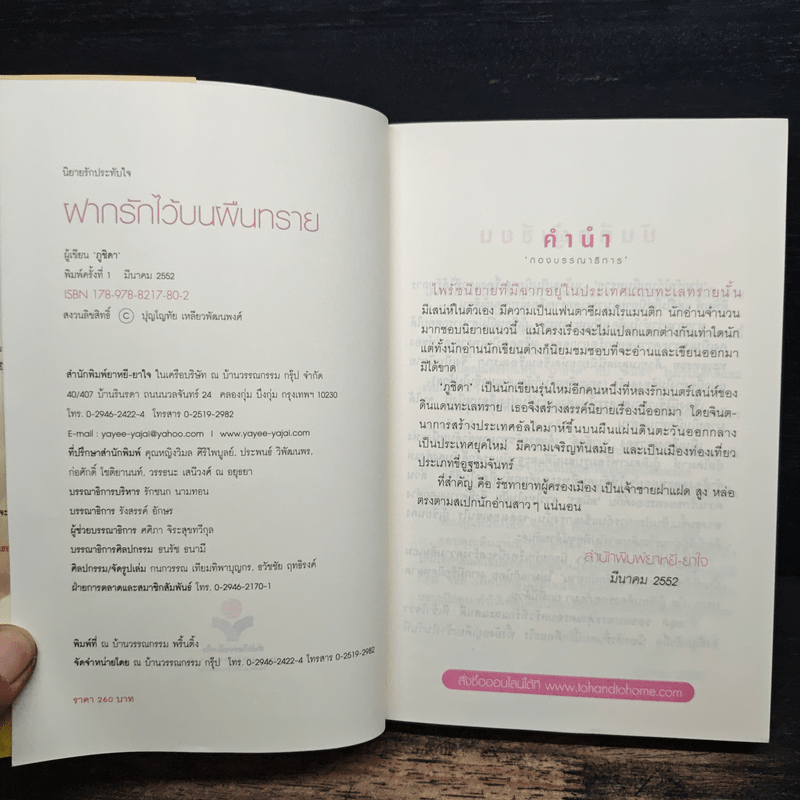 นิยายรักประทับใจ
ฝากรักไว้บนผืนทราย
ผู้เขียน 'ภูชิดา'
พิมพ์ครั้งที่ 1 มีนาคม 2552
ISBN 178-978-8217-80-2
สงวนลิขสิทธิ์ © ปุญโญทัย เหลียวพัฒนพงศ์
สำนักพิมพ์ยาหยี-ยาใจ ในเครือบริษัท ณ บ้านวรรณกรรม กรุ๊ป จำกัด
40/407 บ้านรินรดา ถนนนวลจันทร์ 24 คลองกุ่ม บึงกุ่ม กรุงเทพฯ 10230
โทร. 0-2946-2422-4 โทรสาร 0-2519-2982
E-mail : yayee-yajai@yahoo.com | www.yayee-yajai.com
ที่ปรึกษาสำนักพิมพ์ คุณหญิงวิมล ศิริไพบูลย์, ประพนธ์ วิพัฒนพร,
ก่อศักดิ์ ไชติยานนท์, วรรธนะ เสนีวงศ์ ณ อยุธยา
บรรณาธิการบริหาร รักชนก นามทอน
บรรณาธิการ รังสรรค์ อักษร
ผู้ช่วยบรรณาธิการ ศศิภา จิระสุขทวีกุล
บรรณาธิการศิลปกรรม ธนรัช ธนามี
ศิลปกรรม/จัดรูปเล่ม กนกวรรณ เทียมทิพาบุญกร, ธวัชชัย ฤทธิรงค์
ฝ่ายการตลาดและสมาชิกสัมพันธ์ โทร. 0-2946-2170-1
พิมพ์ที่ ณ บ้านวรรณกรรม พริ้นติ้ง
จัดจำหน่ายโดย ณ บ้านวรรณกรรม กรุ๊ป โทร. 0-2946-2422-4 โทรสาร 0-2519-2982
ราคา 260 บาท
คำนำ
'กองบรรณาธิการ'
ไพรัชนิยายที่มีฉากอยู่ในประเทศแถบทะเลทรายนั้น
มีเสน่ห์ในตัวเอง มีความเป็นแฟนตาซีผสมโรแมนติก นักอ่านจำนวน
มากชอบนิยายแนวนี้ แม้โครงเรื่องจะไม่แปลกแตกต่างกันเท่าใดนัก
แต่ทั้งนักอ่านนักเขียนต่างก็นิยมชมชอบที่จะอ่านและเขียนออกมา
มิได้ขาด
'ภูชิดา' เป็นนักเขียนรุ่นใหม่อีกคนหนึ่งที่หลงรักมนตร์เสน่ห์ของ
ดินแดนทะเลทราย เธอจึงสร้างสรรค์นิยายเรื่องนี้ออกมา โดยจินต-
นาการสร้างประเทศอัลไคมาห์ขึ้นบนผืนแผ่นดินตะวันออกกลาง
เป็นประเทศยุคใหม่ มีความเจริญทันสมัย และเป็นเมืองท่องเที่ยว
ประเภทขี่อูฐชมจันทร์
ที่สำคัญ คือ รัชทายาทผู้ครองเมือง เป็นเจ้าชายฝาแฝด สูง หล่อ
ตรงตามสเปกนักอ่านสาวๆ แน่นอน
สำนักพิมพ์ยาหยี-ยาใจ
มีนาคม 2552
สั่งซื้อออนไลน์ได้ที่ www.tohandtohome.com